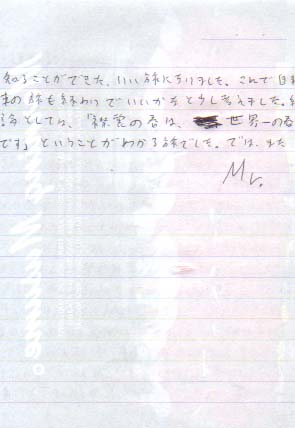 知ることができた、いい旅になりました。これで自転
車の旅も終わりでいいかなと少し考えました。結
論としては、「襟裳の春は、世界一の春
です」ということがわかる旅でした。では、また
Mr.